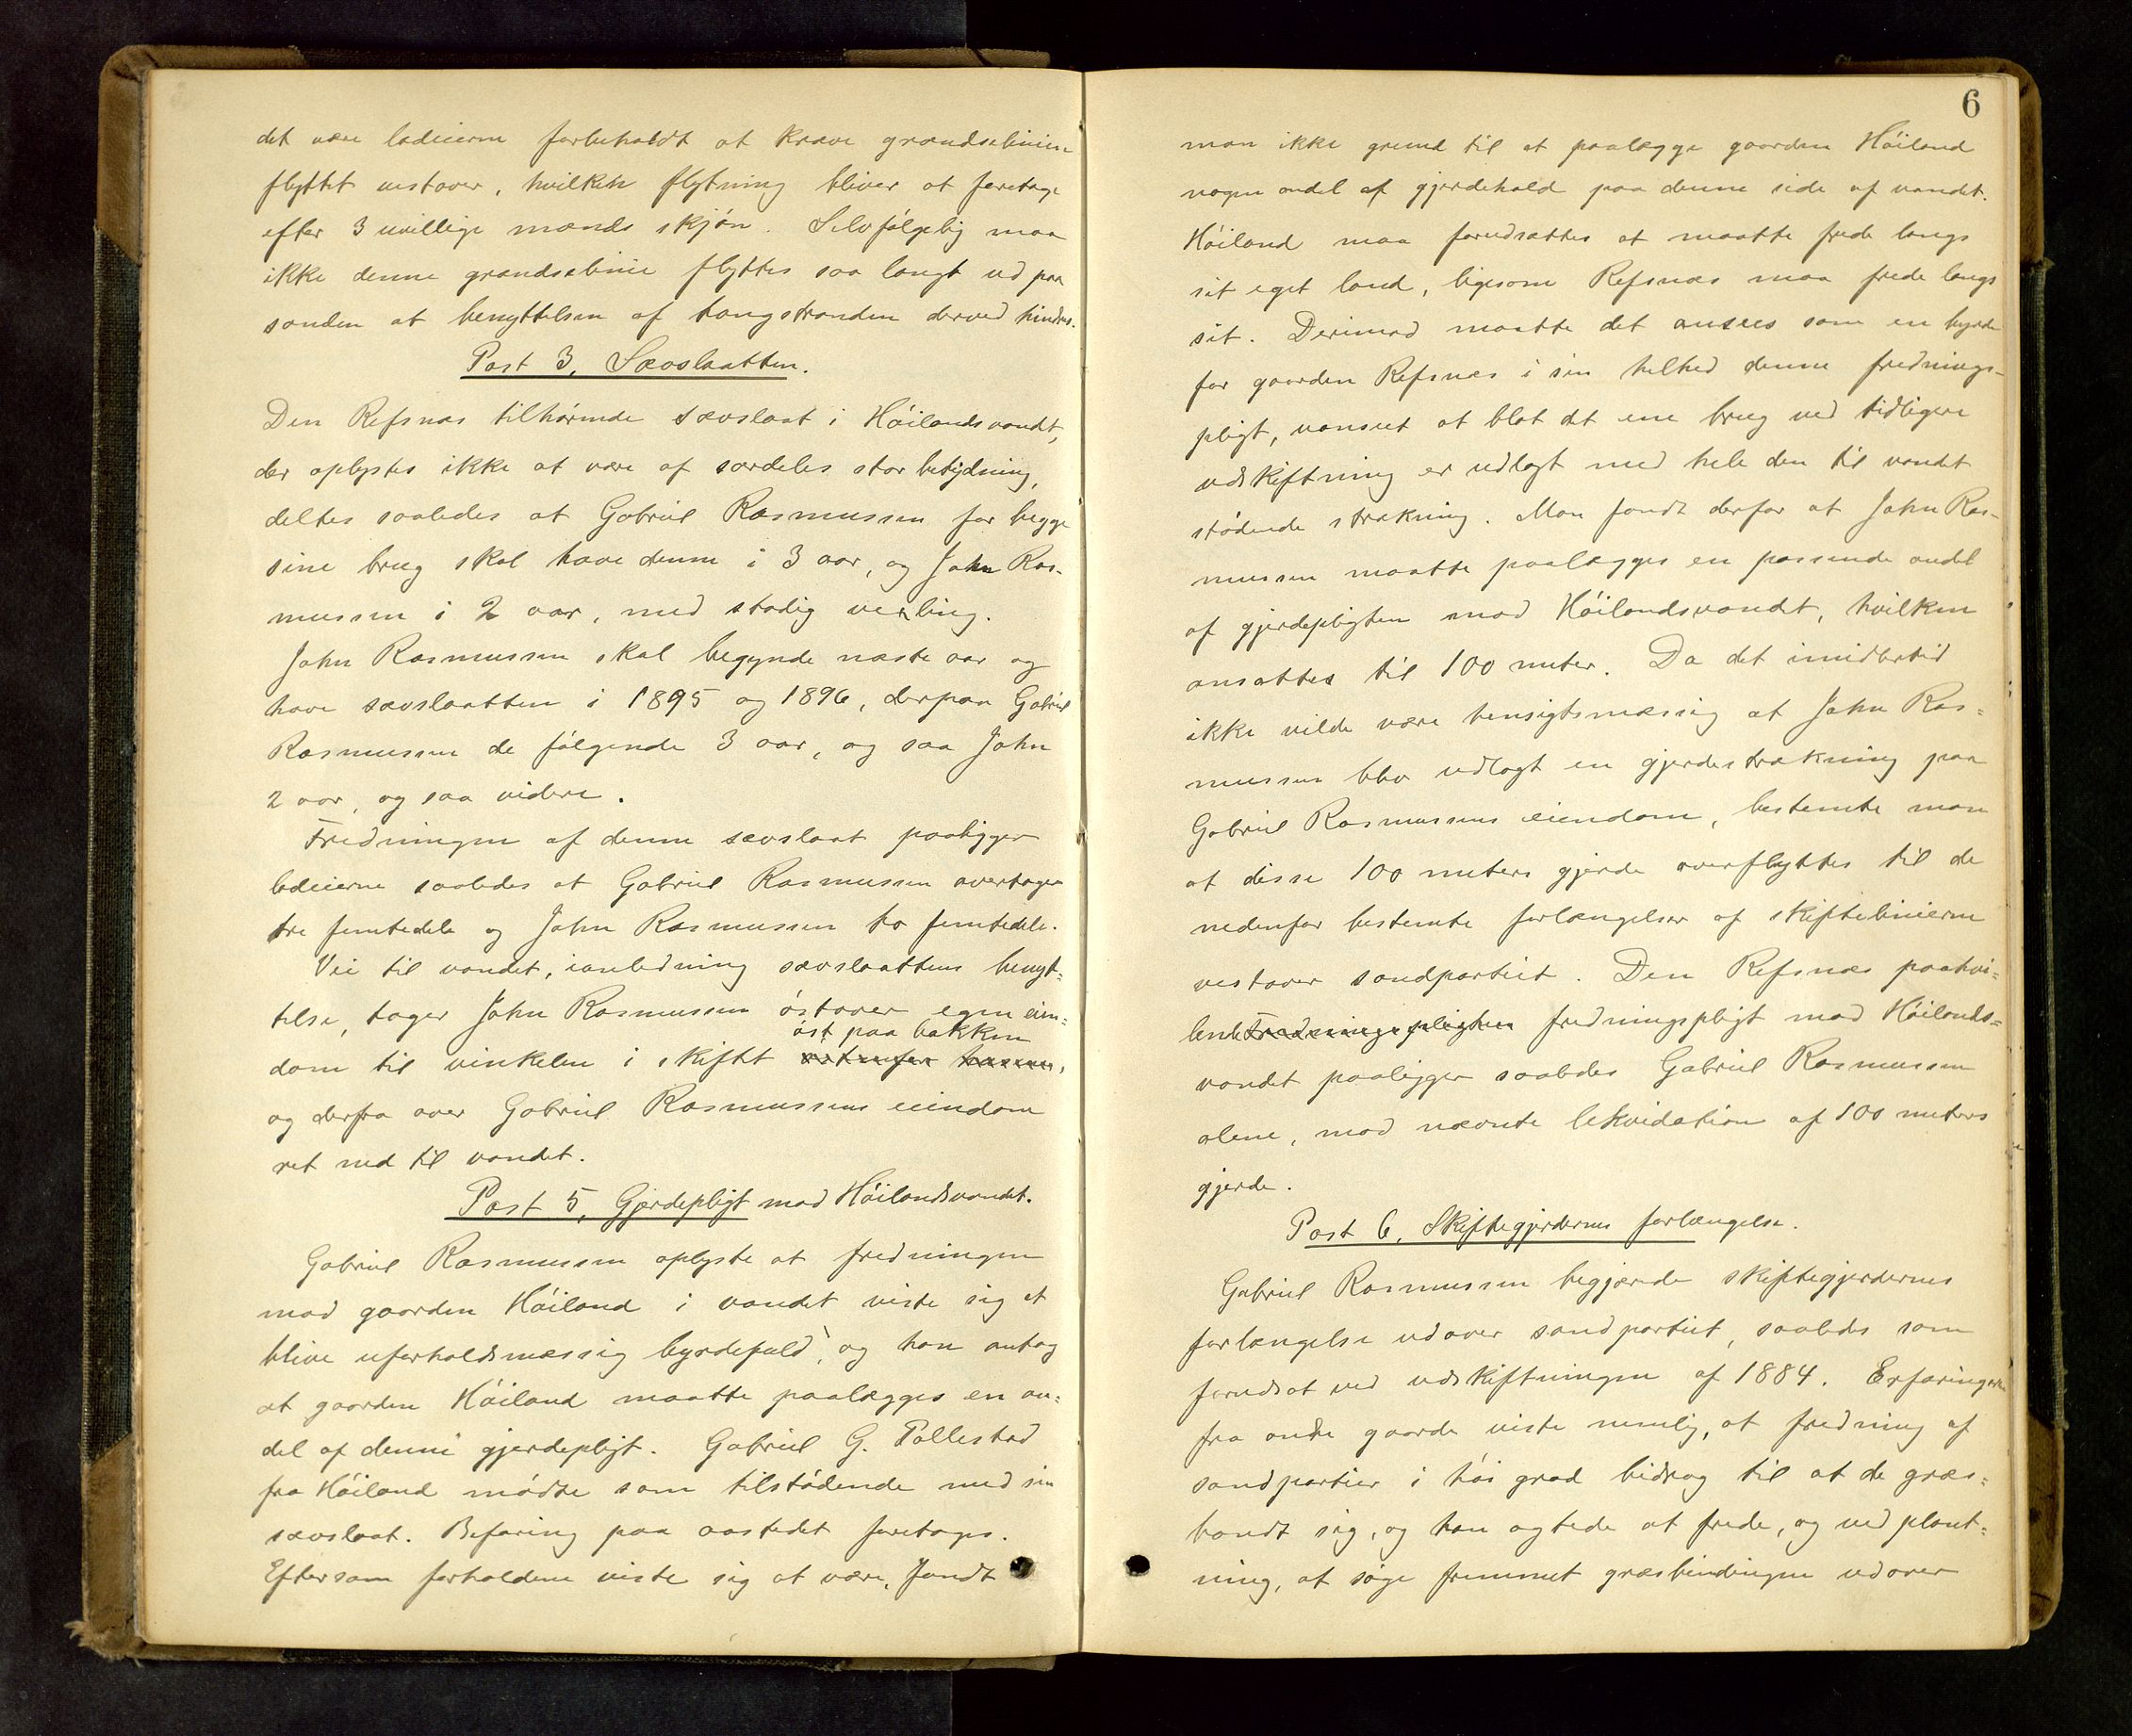 det være lodeierne forbeholdt at kræve grændselinien
flyttet vestover, hvilken flytning bliver at foretage
efter 3 uvillige mænds skjøn. Selvfølgelig maa
ikke denne grændselinie flyttes saa langt ud paa
sanden at benyttelsen af tangstranden derved hindres.
Post 3, Sævslaatten.
Den Refsnæs tilhørende sævslaat i Høilandsvandt,
der oplystes ikke at være af særdeles stor betydning,
deltes saaledes at Gabriel Rasmussen for begge
sine brug skal have denne i 3 aar, og John Ras-
mussen i 2 aar, med stadig vexling.
John Rasmussen skal begynde næste aar og
have sævslaatten i 1895 og 1896, derpaa Gabriel
Rasmussen de følgende 3 aar, og saa John
2 aar, og saa videre.
Fredningen af denne sævslaat paaligger
lodeierne saaledes at Gabriel Rasmussen overtager
tre femtedele og John Rasmussen to femtedele.
Vei til vandet, ianledning sævslaattens benyt=
telse, tager John Rasmussen østover egen eien=
øst paa bakken
dom til vinkelen i skiftet
og derfra over Gabriel Rasmussens eiendom
ret ned til vandet.
Post 5, Gjerdepligt mod Høilandsvandet.
Gabriel Rasmussen oplyste at fredningen
mod gaarden Høiland i vandet viste sig at
blive uforholdsmæssig byrdefuld, og han antog
at gaarden Høiland maatte paalægges en an=
del af denne gjerdepligt. Gabriel G. Pollestad
fra Høiland mødte som tilstødende med sin
sævslaat. Befaring paa aastedet foretages.
Eftersom forholdene viste sig at være, fandt
6
man ikke grund til at paalægge gaarden Høiland
nogen andel af gjerdehold paa denne side af vandet.
Høiland maa forudsættes at maatte frede langs
sit eget land, ligesom Refsnæs maa frede langs
sit. Derimod maatte det ansees som en byrde
for gaarden Refsnæs i sin helhed denne frednings-
pligt, uanseet at blot det ene brug ved tidligere
udskiftning er udlagt med hele den til vandet
stødende strækning. Man fandt derfor at John Ras-
mussen maatte paalægges en passende andel
af gjerdepligten mod Høilandsvandt, hvilken
ansattes til 100 meter. Da det imidlertid
ikke vilde være hensigtsmæssig at John Ras=
mussen blev udlagt en gjerdestrækning paa
Gabriel Rasmussens eiendom, bestemte man
at disse 100 meters gjerde overflyttes til de
nedenfor bestemte forlængelser af skiftelinierne
vestover sandpartiet. Den Refsnæs paahvi=
lende fredningspligten fredningspligt mod Høilands=
vandet paaligger saaledes Gabriel Rasmussen
alene, mod nævnte lekvidation af 100 meters
gjerde.
Post 6, Skiftegjerdernes forlængelse.
Gabriel Rasmussen begjærede skiftegjerdernes
forlængelse udover sandpartiet, saaledes som
forudsat ved udskiftningen af 1884. Erfaringerne
fra andre gaarde viste nemlig, at fredning af
sandpartier i høi grad bidrog til at de græs=
bandt sig, og han agtede at frede, og ved plant=
ning, at søge fremmet græsbindingen udover